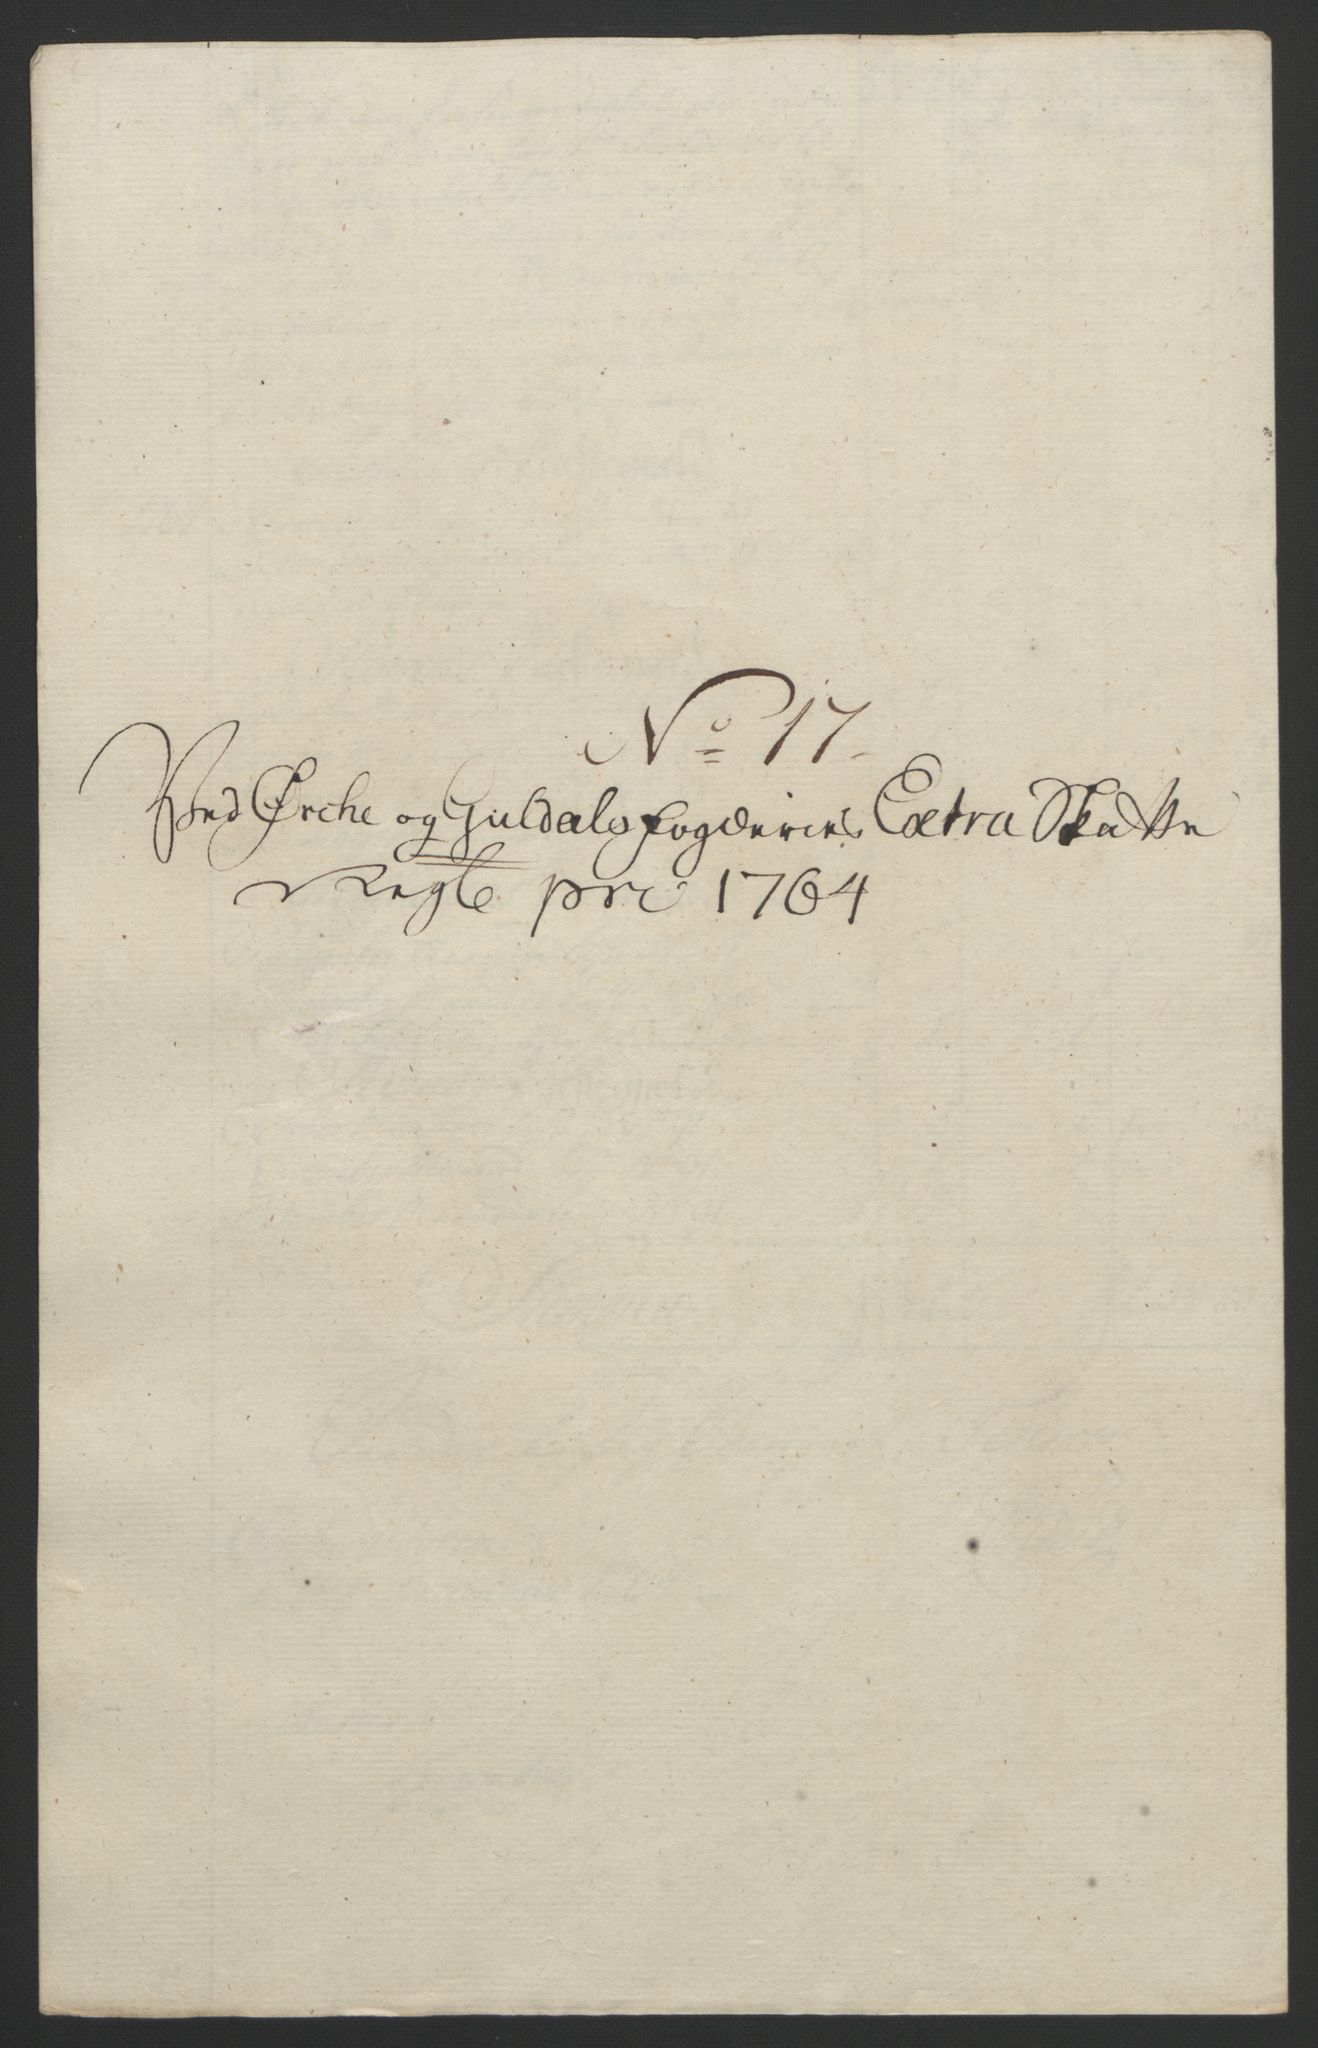 No 17.
Ved Ørche og Guldals fogderies Extra Skatte
Regb pro 1764